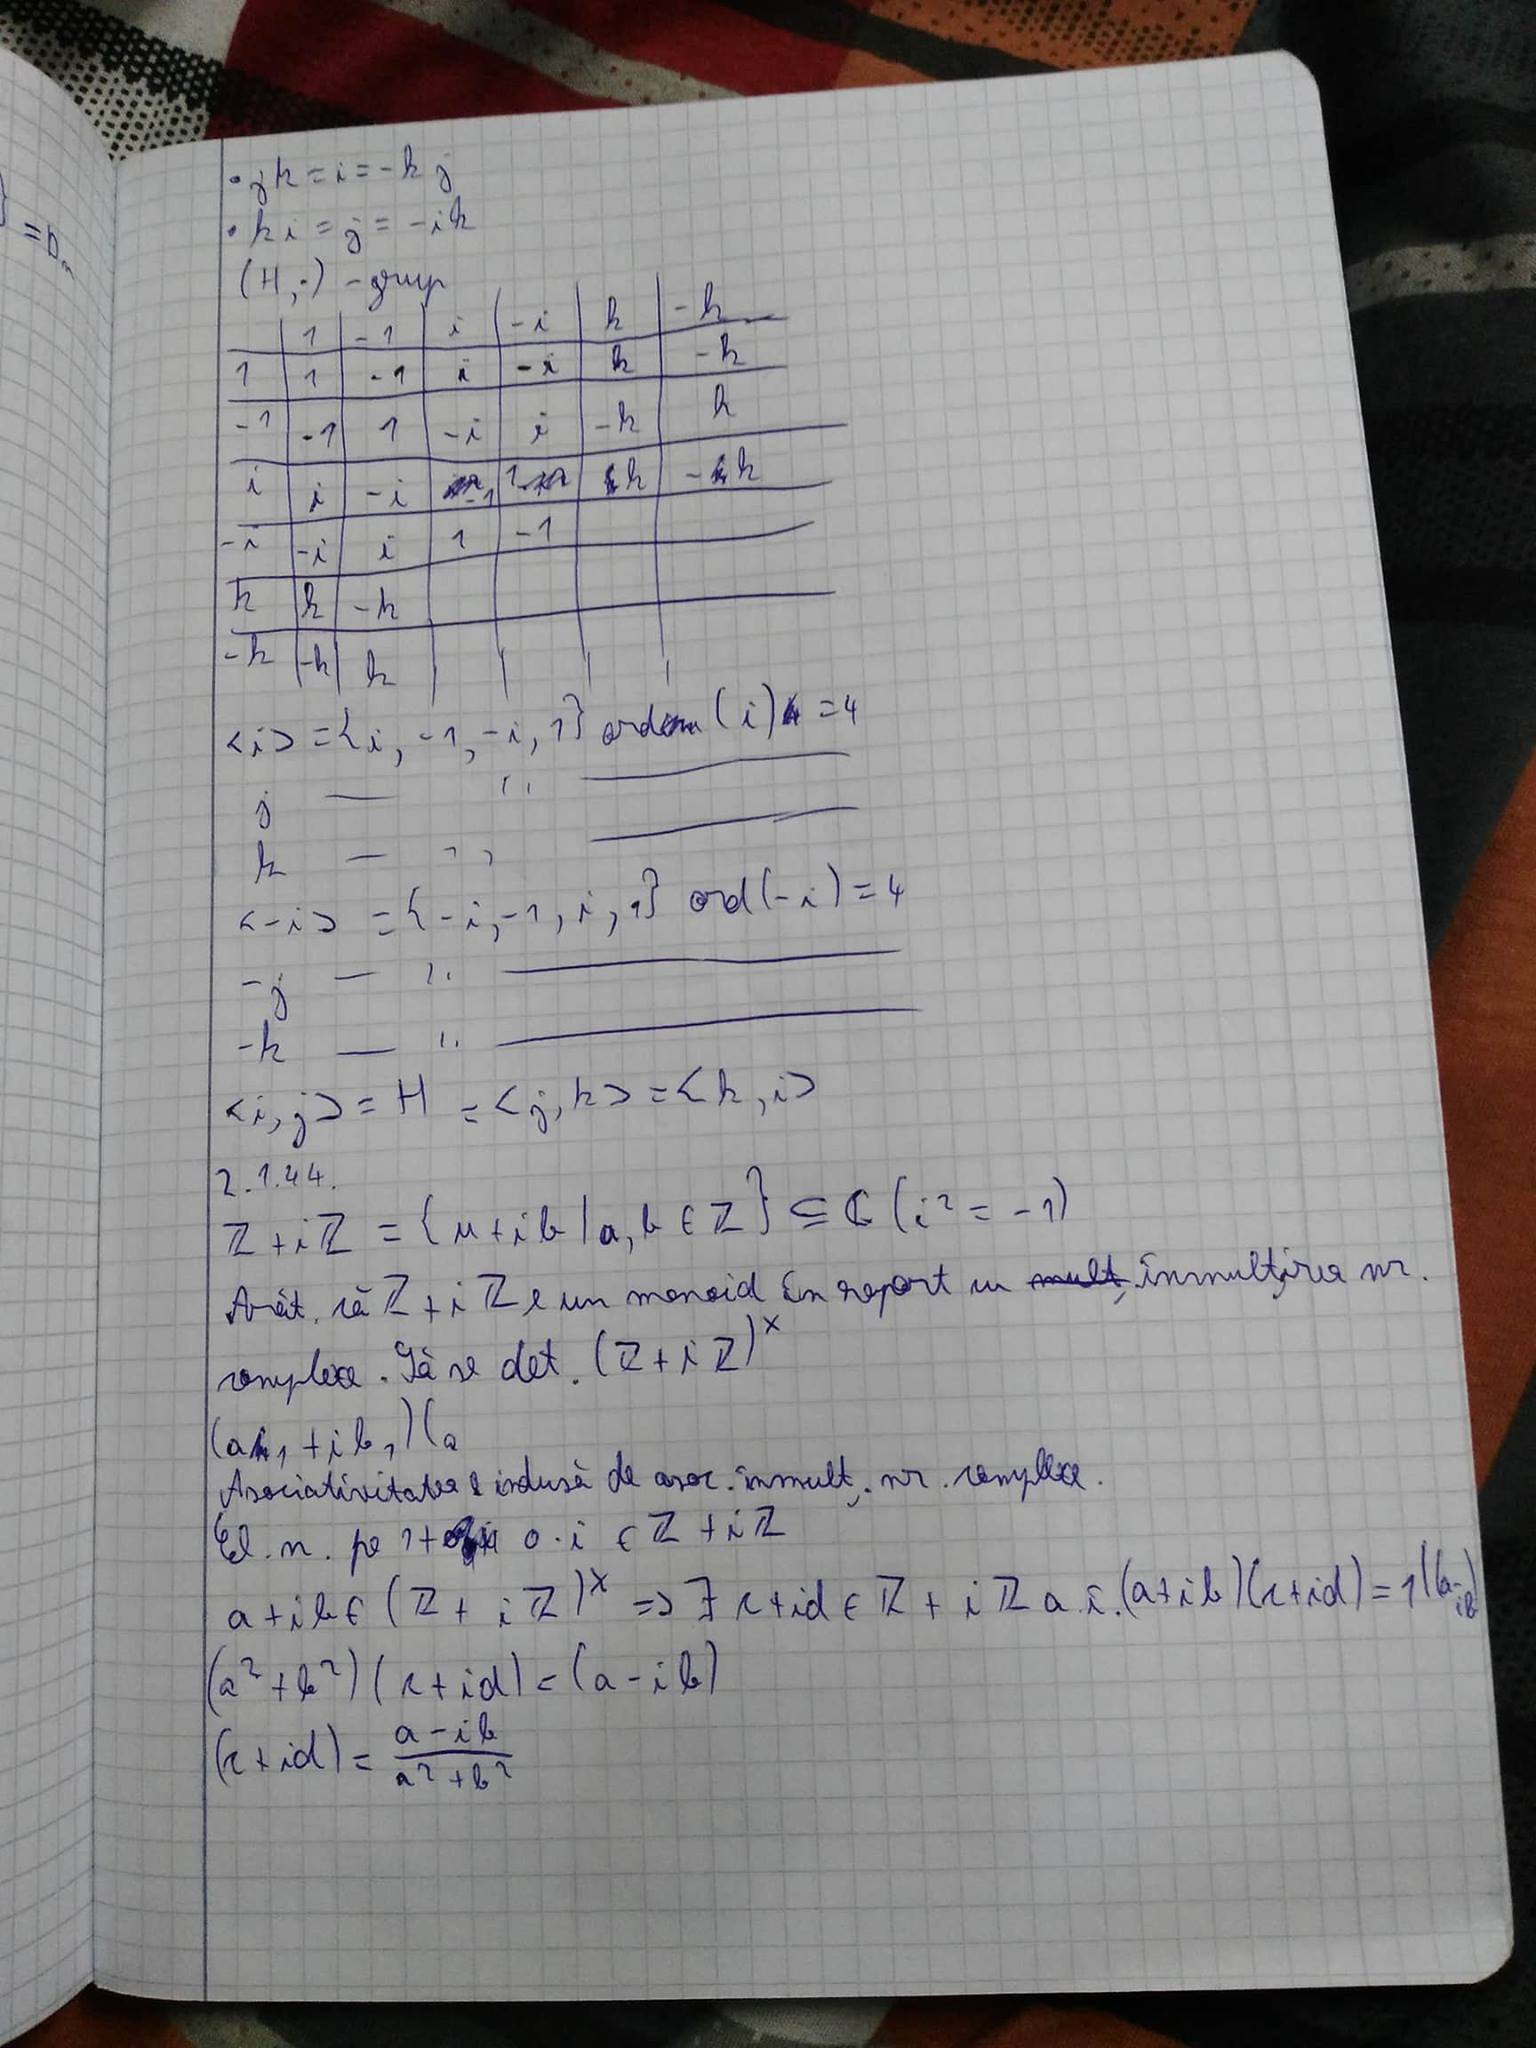 } = D_n
• jk = i = -kj
• ki = j = -ik
(H, ·) - grup
1 -1 i -i k -k
1 1 -1 i -i k -k
-1 -1 1 -i i -k k
i i -i -1 1 k - k
-i -i i 1 -1
k k -k
-k -k k
<i> = {i, -1, -i, 1} ord (i) = 4
j — ,, —
k — ,, —
<-i> = {-i, -1, i, 1} ord(-i) = 4
-j — ,, —
-k — ,, —
<i, j> = H = <j, k> = <k, i>
2.1.44.
ℤ + iℤ = {a + ib | a, b ∈ ℤ} ⊆ ℂ (i² = -1)
Arăt. că ℤ + iℤ e un monoid în raport cu mult, înmulțirea nr.
complexe. Să se det. (ℤ + iℤ)^×
(a₁ + ib₁)(a
Asociativitatea e indusă de asoc. înmulț. nr. complexe.
El. n. pe 1 + 0·i ∈ ℤ + iℤ
a + ib ∈ (ℤ + iℤ)^× => ∃ c + id ∈ ℤ + iℤ a.î. (a + ib)(c + id) = 1 |(a - ib)
(a² + b²)(c + id) = (a - ib)
(c + id) = (a - ib)/(a² + b²)